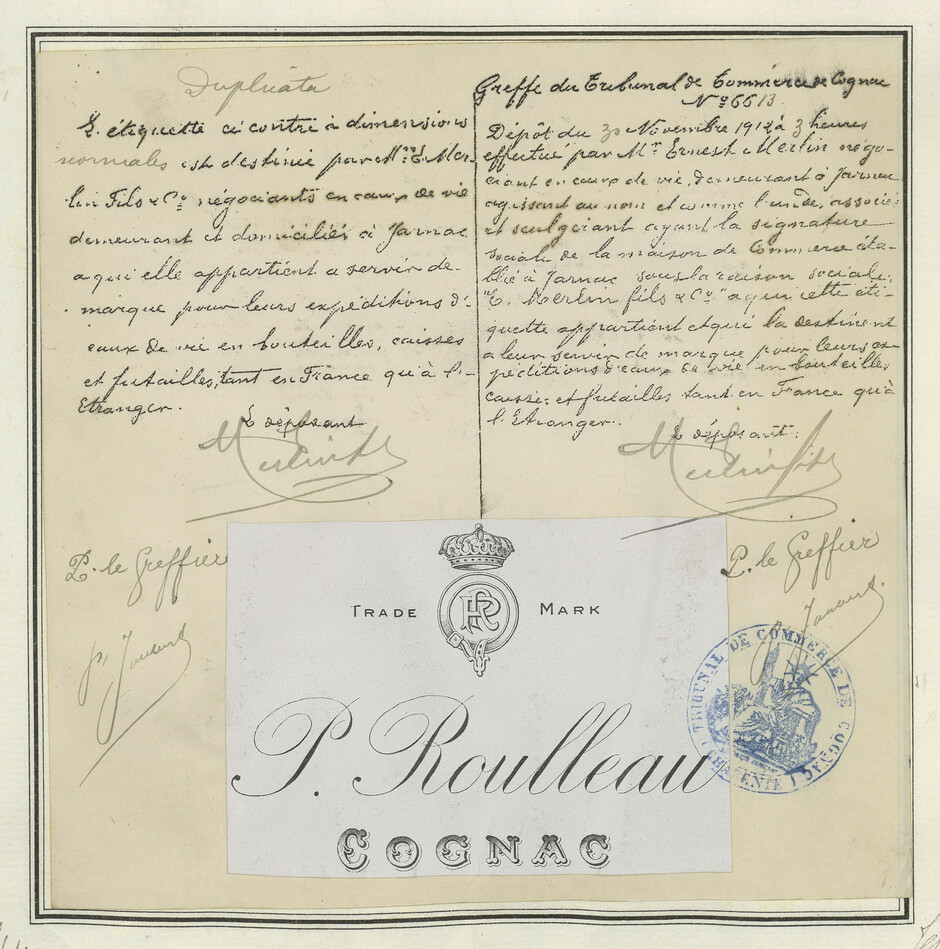 Duplicata
L'étiquette ci contre à dimensions
normales est destinée par Mrs E. Mer-
lin Fils & Co négociants en eaux de vie
demeurant et domiciliés à Jarnac
a qui elle appartient a servir de
marque pour leurs expéditions d'
eaux de vie en bouteilles, caisses
et futailles, tant en France qu'à l'-
Etranger.
Le déposant
Merlin fils
P. le Greffier
Greffe du Tribunal de Commerce de Cognac
No 6613
Dépôt du 30 Novembre 1912 à 3 heures
effectué par Mr Ernest Merlin négo-
ciant en eaux de vie, demeurant à Jarnac
agissant au nom et comme l'un des associés
et seul gérant ayant la signature
sociale de la maison de Commerce éta-
blie à Jarnac sous la raison sociale.
"E. Merlin fils & Co" a qui cette éti-
quette appartient et qui la destinent
a leur servir de marque pour leurs ex-
péditions d'eaux de vie en bouteilles
caisses et futailles tant en France qu'à
l'Etranger.
Le déposant:
Merlin fils
P. le Greffier
TRADE MARK
P. Roulleau
COGNAC
TRIBUNAL DE COMMERCE DE COGNAC
(CHARENTE)